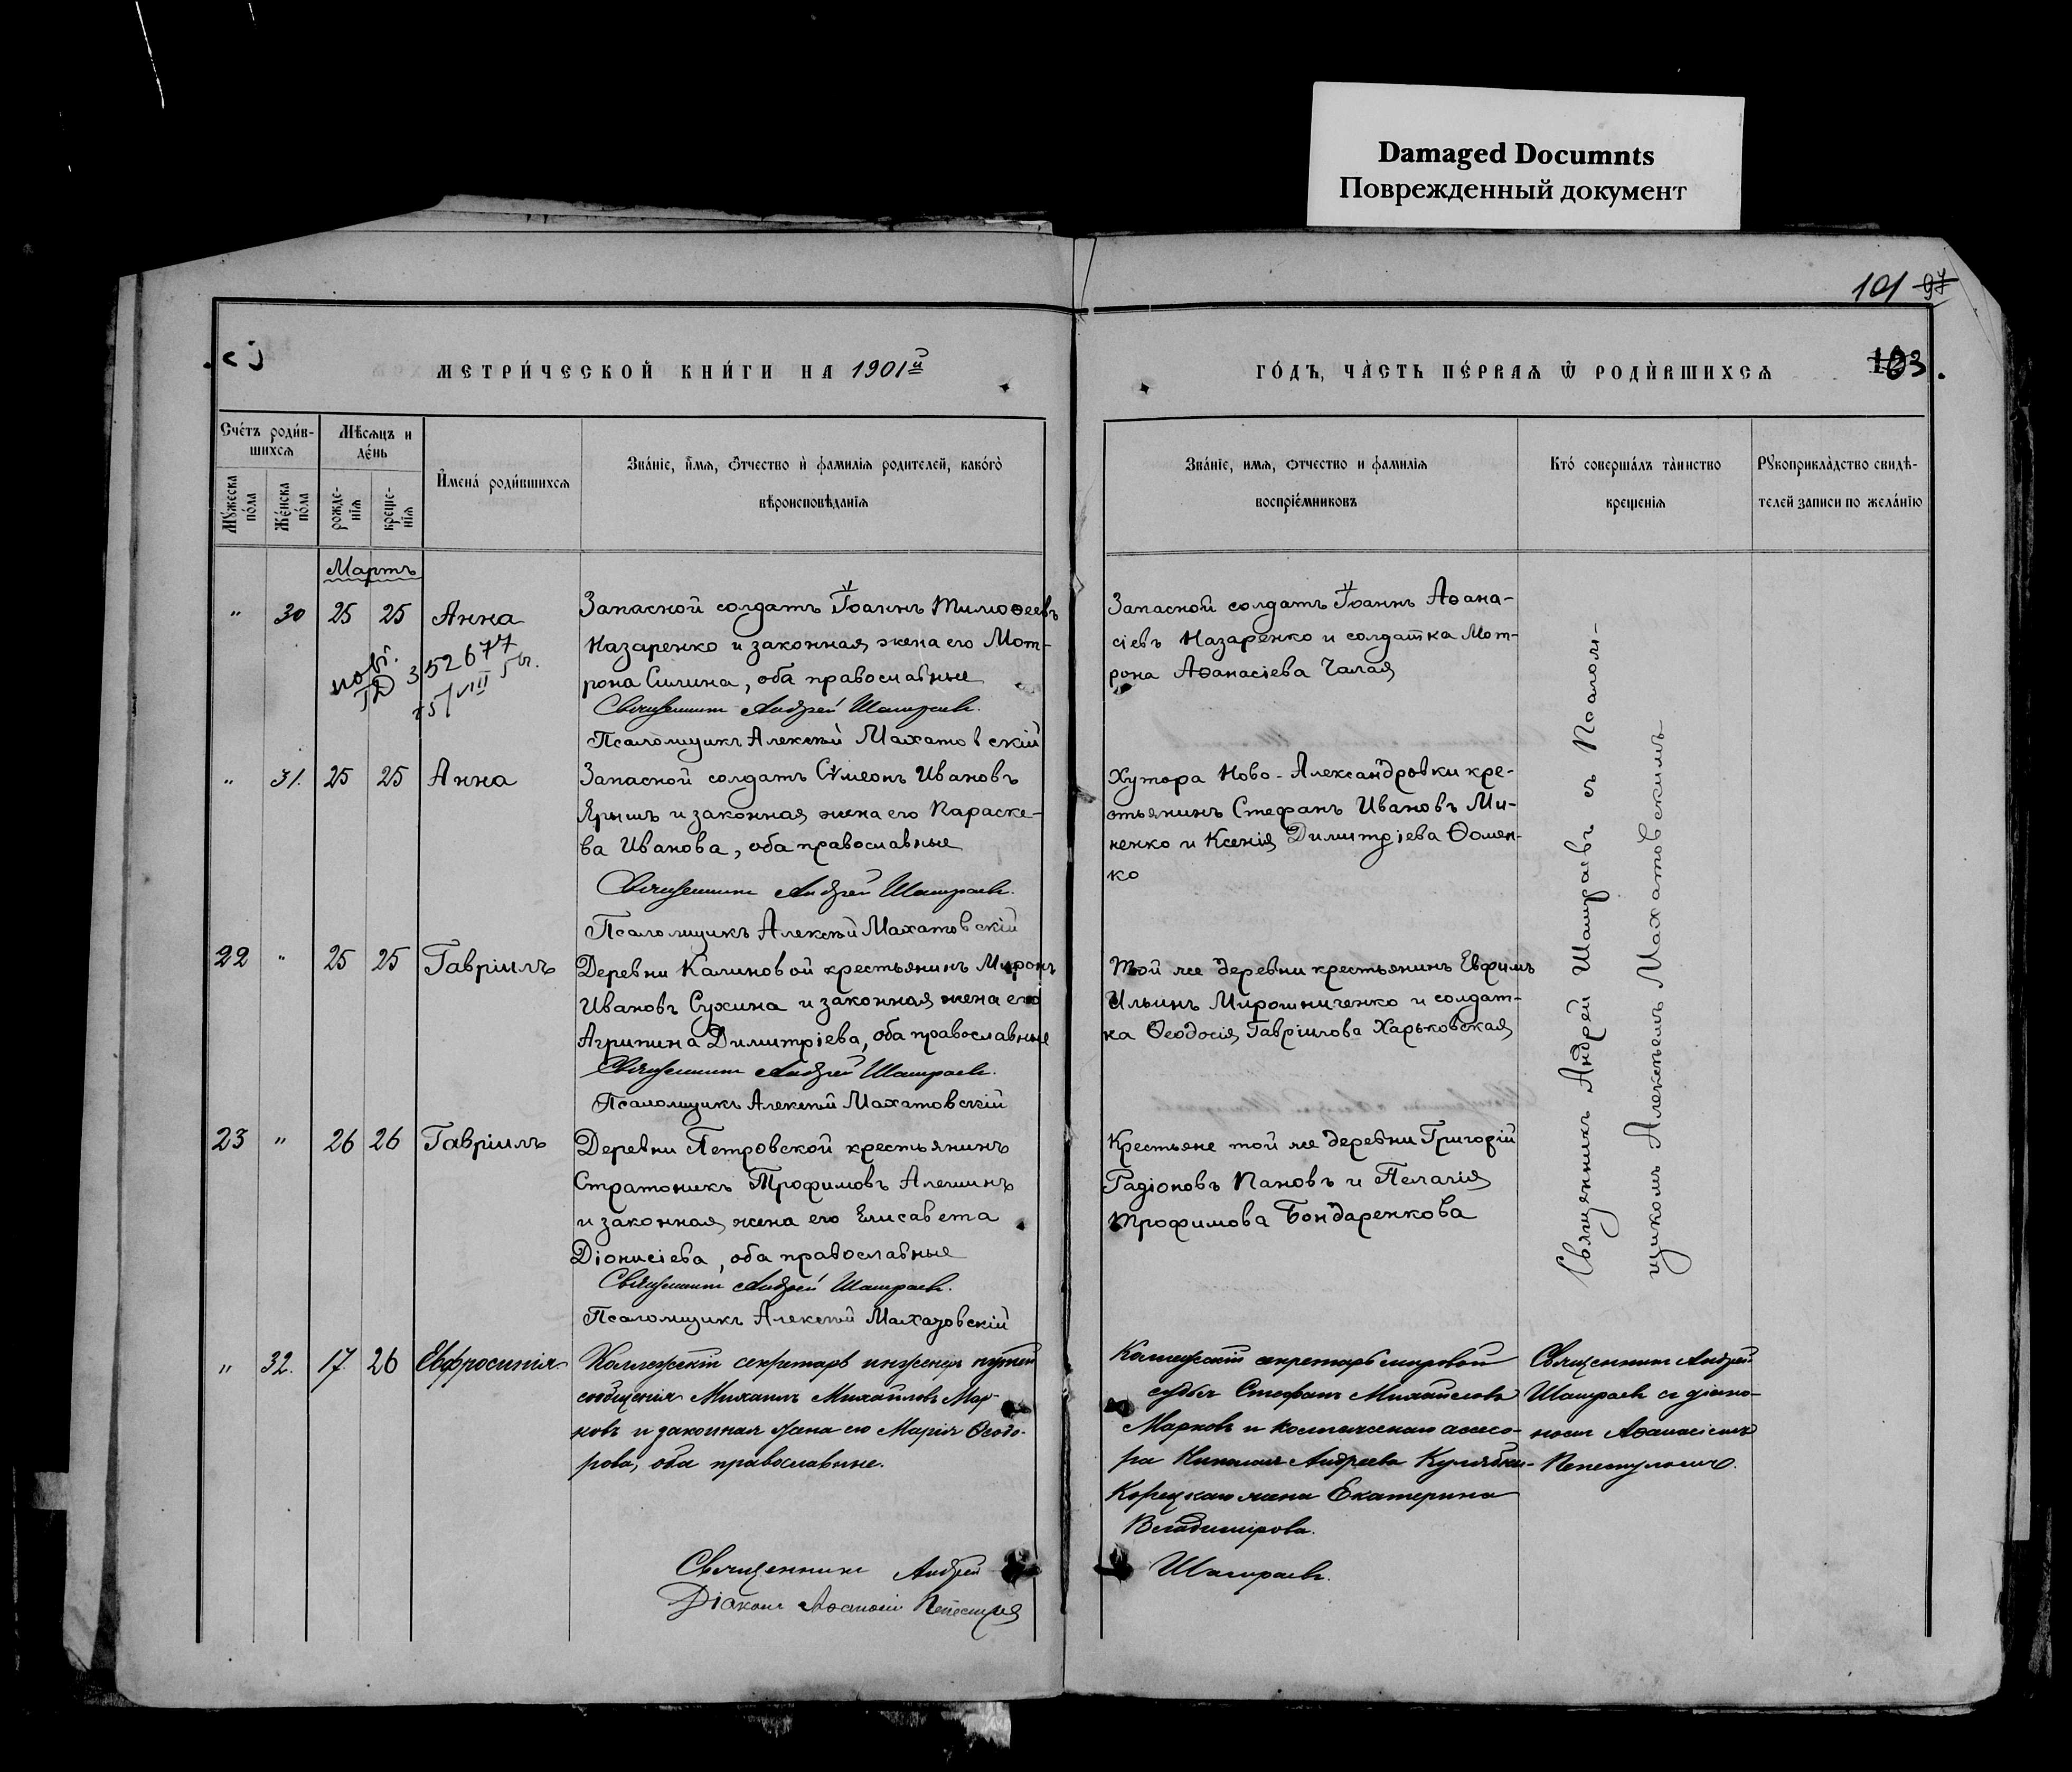 Damaged Documnts
Поврежденный документ
101 97
МЕТРИ́ЧЕСКОЙ КНИ́ГИ НА 1901й
ГО́ДЪ, ЧА́СТЬ ПЕ́РВАЯ Ѡ РОДИ́ВШИХСЯ
103.
Сче́тъ роди́в-
шихся
Му́жеска
по́ла
Же́нска
по́ла
Мѣсяцъ и
де́нь
рожде-
нія
креще-
нія
И́мена́ роди́вшихся
Зва́ніе, и́мя, о́тчество и́ фами́лія родителей, како́гѡ
вѣроисповѣ́данія
Зва́ніе, имя, отчество и фами́лія
воспріе́мниковъ
Кто́ соверша́лъ та́инство
крещенія
Рꙋкоприкла́дство свидѣ́-
телей записи по жела́нію
Мартъ
" 30 25 25 Анна
Запасной солдатъ Іоаннъ Тимоѳеевъ
Назаренко и законная жена его Мот-
рона Силина, оба православные
Священникъ Андрей Шатраевъ.
Псаломщикъ Алексѣй Махатовскій
Запасной солдатъ Іоаннъ Аѳана-
сіевъ Назаренко и солдатка Мот-
рона Аѳанасіева Чалая
352677
" 31. 25 25 Анна
Запасной солдатъ Сѵмеонъ Ивановъ
Ярышъ и законная жена его Параске-
ва Иванова, оба православные
Священникъ Андрей Шатраевъ.
Псаломщикъ Алексѣй Махатовскій
Хутора Ново-Александровки кре-
стьянинъ Стефанъ Ивановъ Ми-
ненко и Ксенія Димитріева Ѳомен-
ко
22 " 25 25 Гавріилъ
Деревни Калиновой крестьянинъ Миронъ
Ивановъ Сухина и законная жена его
Агрипина Димитріева, оба православные
Священникъ Андрей Шатраевъ.
Псаломщикъ Алексѣй Махатовскій
Той же деревни крестьянинъ Евфимъ
Ильинъ Мирошниченко и солдат-
ка Ѳеодосія Гавріилова Харьковская
23 " 26 26 Гавріилъ
Деревни Петровской крестьянинъ
Стратоникъ Трофимовъ Алешинъ
и законная жена его Елисавета
Діонисіева, оба православные
Священникъ Андрей Шатраевъ.
Псаломщикъ Алексѣй Махатовскій
Крестьяне той же деревни Григорій
Радіоновъ Пановъ и Пелагія
Трофимова Бондаренкова
Священникъ Андрей Шатраевъ съ Псалом-
щикомъ Алексѣемъ Махатовскимъ
" 32. 17. 26 Евфросинія
Коллежскій секретарь инженеръ путей
сообщенія Михаилъ Михайловъ Мар-
ковъ и законная жена его Марія Ѳеодо-
рова, оба православные.
Коллежскій секретарь мировой
судья Стефанъ Михайловъ
Марковъ и коллежскаго ассесо-
ра Николая Андреева Кулябки-
Корецкаго жена Екатерина
Владимірова.
Священникъ Андрей
Шатраевъ съ діако-
номъ Аѳанасіемъ
Священникъ Андрей Шатраевъ.
Діаконъ Аѳанасій